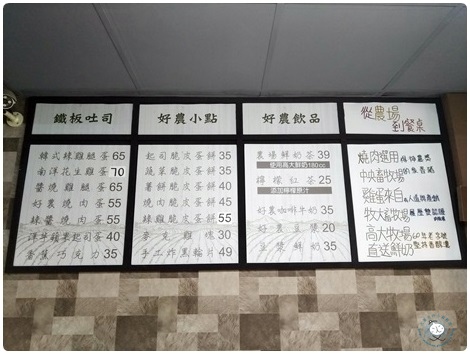 鐵板吐司
韓式辣雞腿蛋 65
南洋花生雞蛋 70
醬燒雞腿蛋 65
好農燒肉蛋 55
綠醬燒肉蛋 55
洋芋蘋果起司蛋 40
香蕉巧克力 35
好農小點
起司脆皮蛋餅 35
蔬菜脆皮蛋餅 35
薯餅脆皮蛋餅 40
燒肉脆皮蛋餅 45
綠雞脆皮蛋餅 55
麥克雞塊 30
手工炸黑輪片 49
好農飲品
農場鮮奶茶 39
使用高大鮮奶180cc
檸檬紅茶 25
添加檸檬原汁
好農咖啡牛奶 35
好農豆漿 20
豆漿鮮奶 35
從農場
到餐桌
燒肉選用
中央畜牧場
雞蛋來自
牧大畜牧場
高大牧場
直送鮮奶